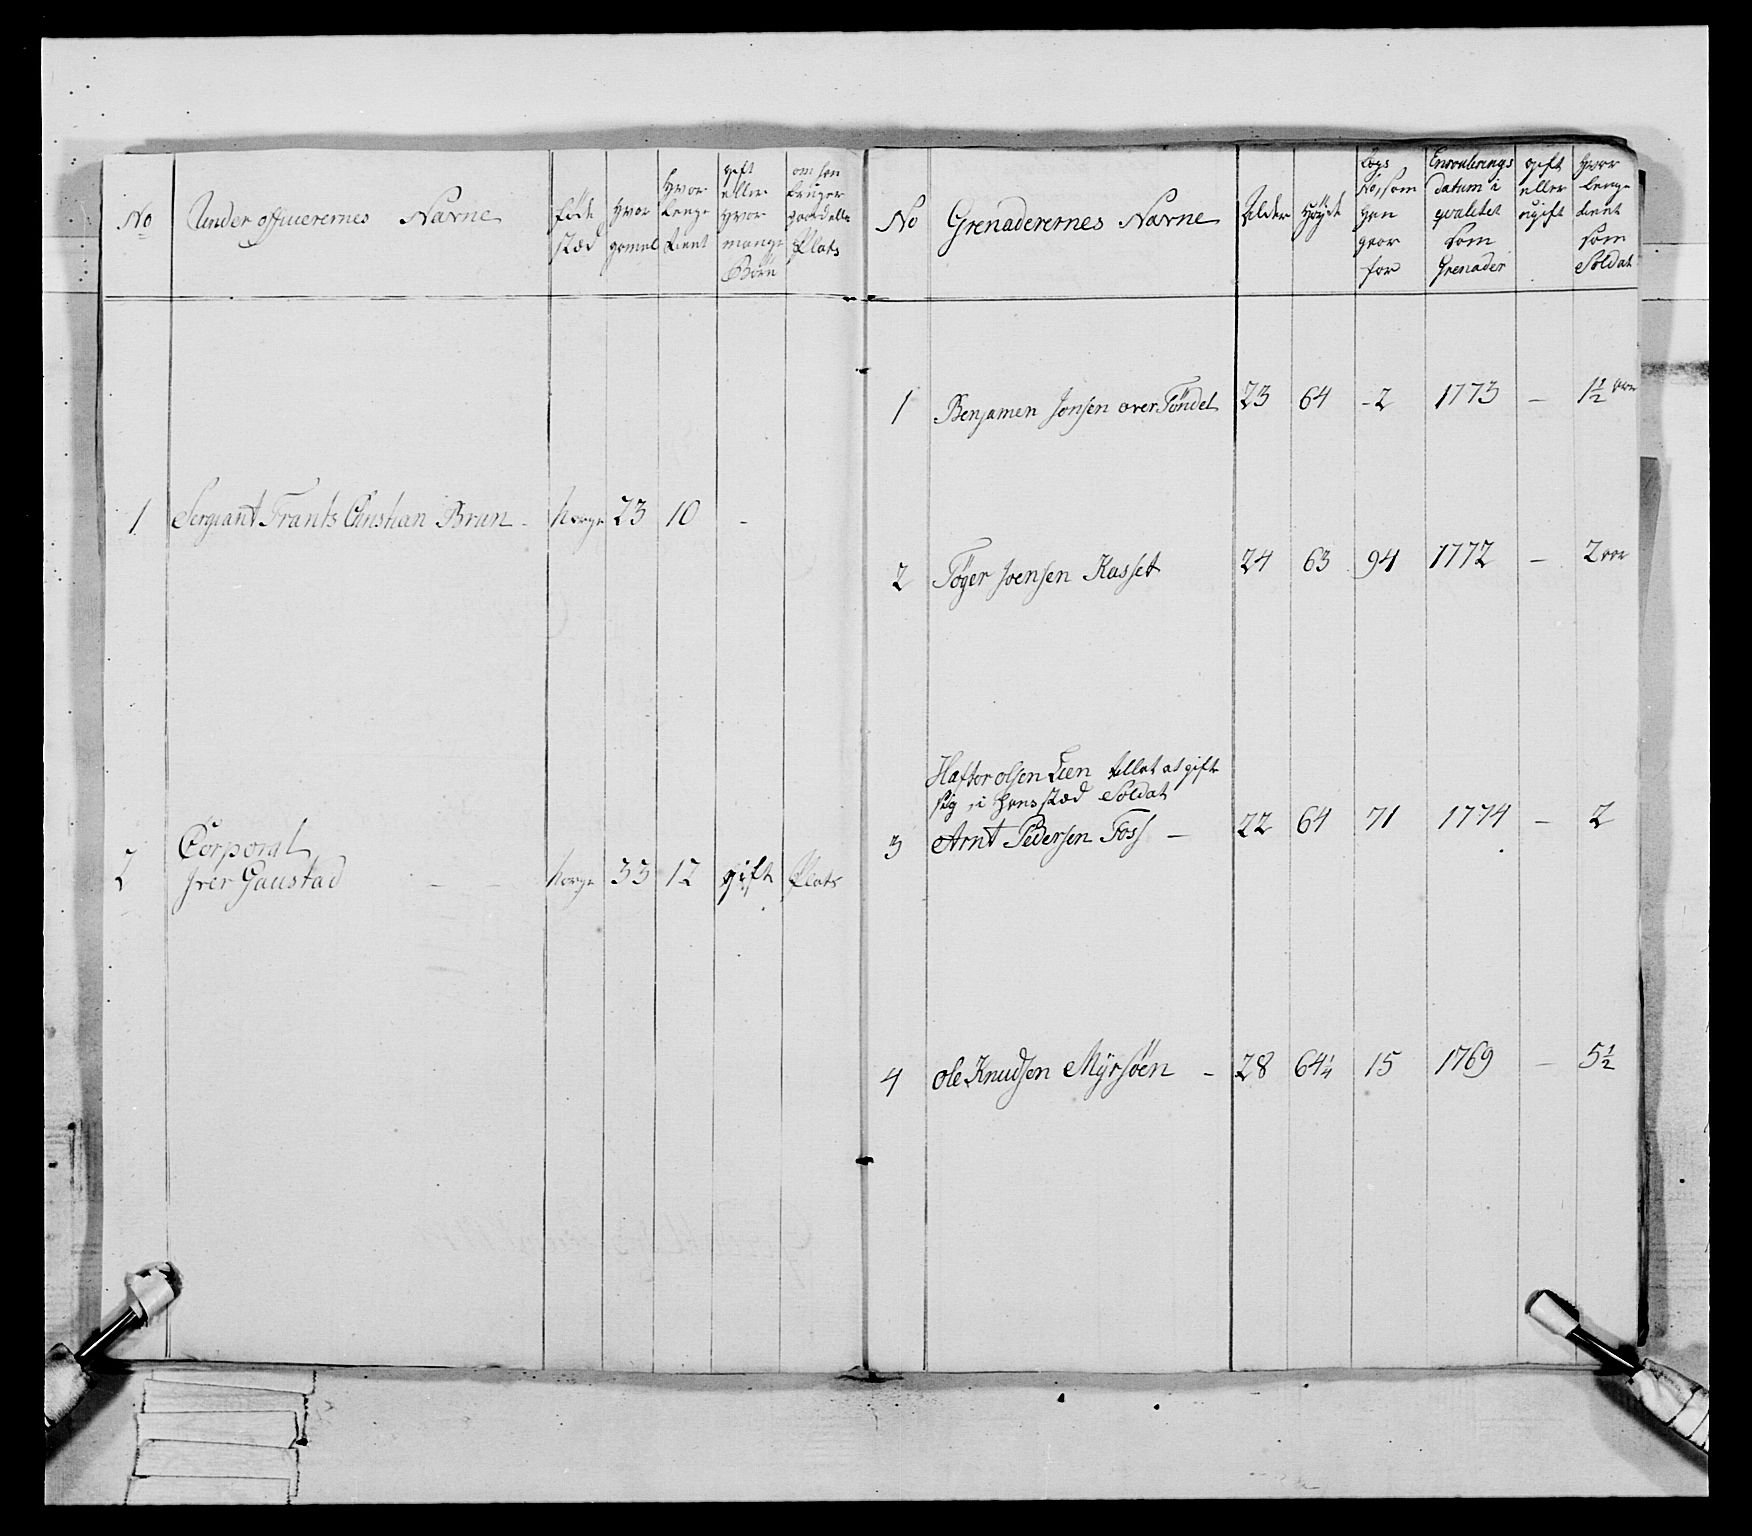 No Under officerernes Navne føde stæd hvor gamel hvor lenge tient gift eller hvor mange Børn om han bruger gaard eller Plats
1 Sergiant Frants Christian Brun - Norge 23 10 -
2 Corporal
Iver Gaustad - - Norge 33 12 gift Plats
No Grenaderernes Navne Alder Høyde Lægs No, som han geør for Enroulerings datum i qvalitet som Grenader gift eller ugift hvor lenge tient som Soldat
1 Benjamen Jonsen over Tøndel 23 64 - 2 1773 - 1 1/2
2 Tøger Joensen Kasset 24 63 94 1772 - 2
Hafter olsen Lien tillat at gifte
sig, i hans stæd Soldat
3 Arnt Pedersen Foss - 22 64 71 1774 - 2
4 Ole Knudsen Myrsøen - 28 64 1/4 15 1769 - 5 1/2